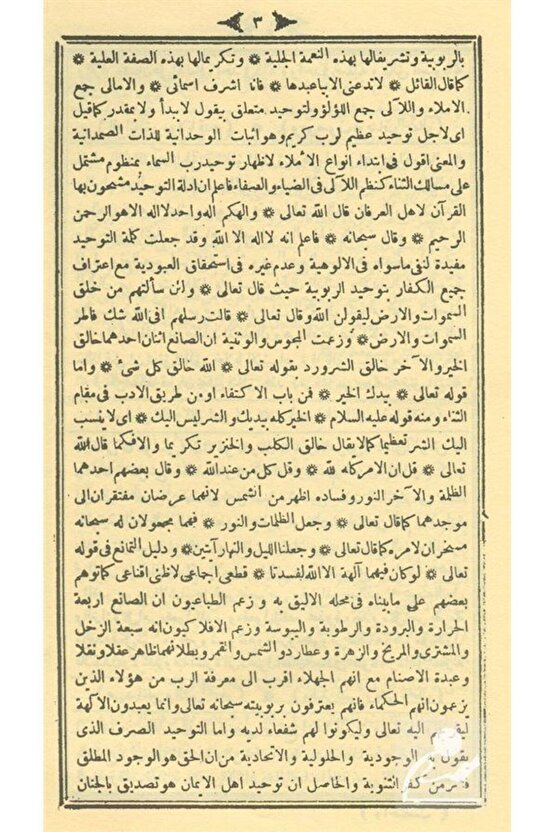 ٣
بالربوبية وتشريفالها بهذه النعمة الجلية ❊ وتكريمالها بهذه الصفة العلية ❊
كما قال القائل ❊ لاتدعنى الابيا عبدها ❊ فانه اشرف اسمائى ❊ والامالى جمع
الاملاء واللآلى جمع اللؤلؤ ولتوحيد متعلق بيقول لابيدأ ولا بمقدر كما قيل
اى لاجل توحيد عظيم لرب كريم وهو اثبات الوحدانية للذات الصمدانية
والمعنى اقول فى ابتداء انواع الأملاء لاظهار توحيد رب السماء بمنظوم مشتمل
على مسالك الثناء كنظم اللآلى فى الضياء والصفاء فاعلم ان ادلة التوحيد مشحون بها
القرآن لاهل العرفان قال الله تعالى ❊ والهكم اله واحد لااله الاهو الرحمن
الرحيم ❊ وقال سبحانه ❊ فاعلم انه لااله الا الله وقد جعلت كلمة التوحيد
مفيدة لنفى ماسواه فى الالوهية وعدم غيره فى استحقاق العبودية مع اعتراف
جميع الكفار بتوحيد الربوبية حيث قال تعالى ❊ ولئن سألتهم من خلق
السموات والارض ليقولن الله وقال تعالى ❊ قالت رسلهم افى الله شك فاطر
السموات والارض ❊ وزعمت المجوس والوثنية ان الصانع اثنان احدهما خالق
الخير والآخر خالق الشر ورد بقوله تعالى ❊ الله خالق كل شئ ❊ واما
قوله تعالى ❊ بيدك الخير ❊ فمن باب الاكتفاء او من طريق الادب فى مقام
الثناء ومنه قوله عليه السلام ❊ الخير كله بيديك والشر ليس اليك ❊ اى لاينسب
اليك الشر تعظيما كما لايقال خالق الكلب والخنزير تكريما والا فكما قال الله
تعالى ❊ قل ان الامر كله لله ❊ وقل كل من عند الله ❊ وقال بعضهم احدهما
الظلمة والآخر النور وفساده اظهر من الشمس لانهما عرضان مفتقران الى
موجدهما كما قال تعالى ❊ وجعل الظلمات والنور ❊ فهما مجعولان له سبحانه
مسخران لامره كما قال تعالى ❊ وجعلنا الليل والنهار آيتين ❊ ودليل التمانع فى قوله
تعالى ❊ لوكان فيهما آلهة الاالله لفسدتا ❊ قطعى اجماعى لاظنى اقناعى كما توهم
بعضهم على مابيناه فى محله الاليق به وزعم الطباعيون ان الصانع اربعة
الحرارة والبرودة والرطوبة واليبوسة وزعم الافلاكيون انه سبعة الزحل
والمشترى والمريخ والزهرة وعطارد والشمس والقمر وبطلانهما ظاهر عقلا ونقلا
وعبدة الاصنام مع انهم الجهلاء اقرب الى معرفة الرب من هؤلاء الذين
يزعمون انهم الحكماء فانهم يعترفون بربوبيته سبحانه تعالى وانما يعبدون الآلهة
ليقربهم اليه تعالى وليكونوا لهم شفعاء لديه واما التوحيد الصرف الذى
يقول به الوجودية والحلولية والاتحادية من ان الحق هو الوجود المطلق
من كفر الثنوية والحاصل ان توحيد اهل الايمان هو تصديق بالجنان